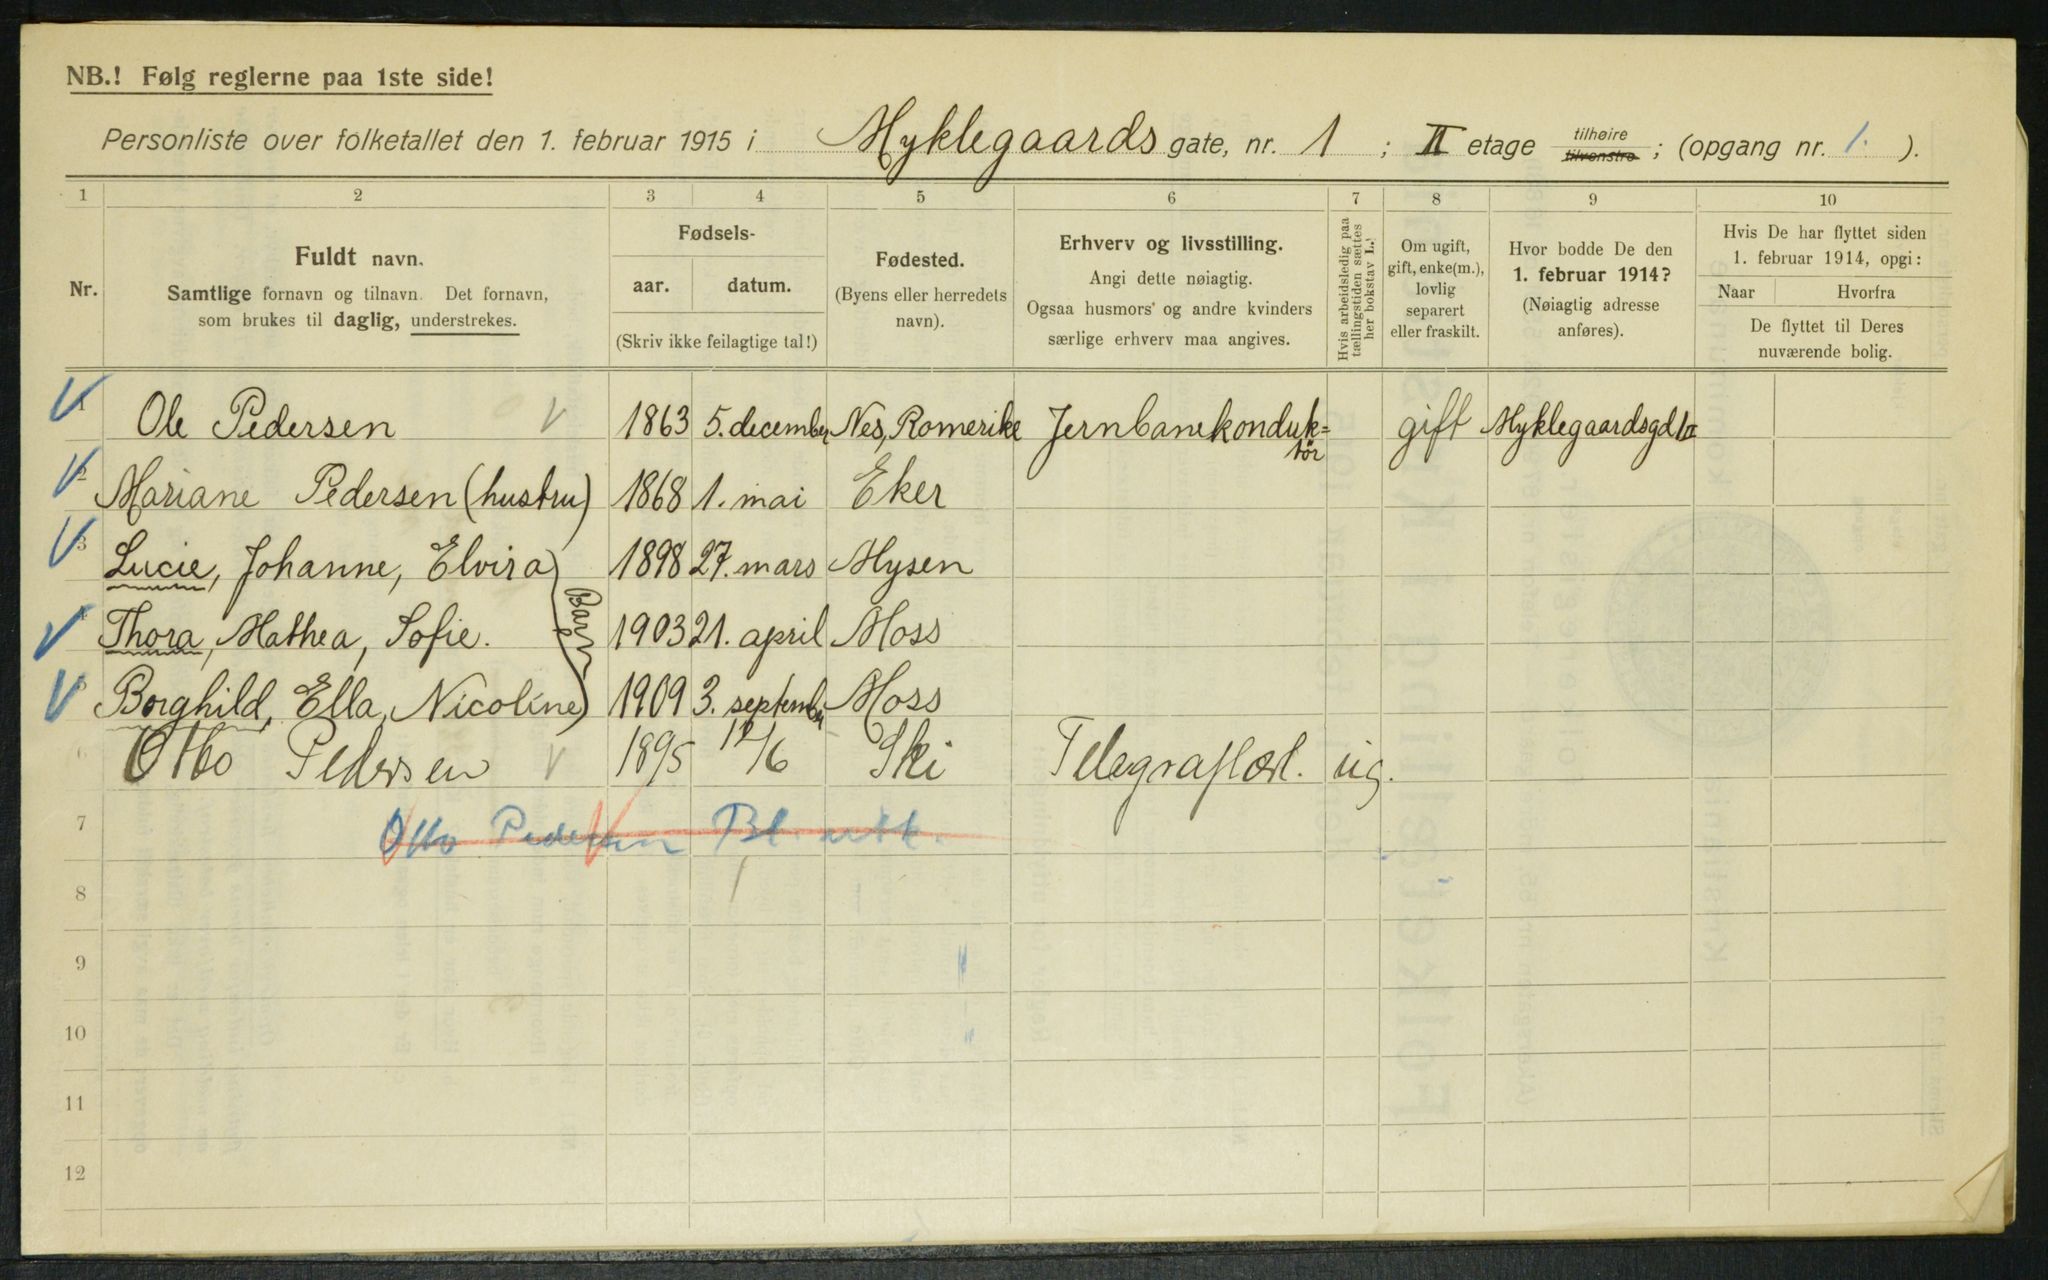 NB.! Følg reglerne paa 1ste side!
Personliste over folketallet den 1. februar 1915 i Myklegaards gate, nr. 1 ; II etage tilhøire tilvenstre ; (opgang nr. 1. ).
1 2 3 4 5 6 7 8 9 10
Nr.
Fuldt navn.
Samtlige fornavn og tilnavn. Det fornavn,
som brukes til daglig, understrekes.
Fødsels-
aar. datum.
(Skriv ikke feilagtige tal!)
Fødested.
(Byens eller herredets
navn).
Erhverv og livsstilling.
Angi dette nøiagtig.
Ogsaa husmors' og andre kvinders
særlige erhverv maa angives.
Hvis arbeidsledig paa
tællingstiden sættes
her bokstav L.
Om ugift,
gift, enke(m.),
lovlig
separert
eller fraskilt.
Hvor bodde De den
1. februar 1914?
(Nøiagtig adresse
anføres).
Hvis De har flyttet siden
1. februar 1914, opgi:
Naar Hvorfra
De flyttet til Deres
nuværende bolig.
1 Ole Pedersen 1863 5. december Nes, Romerike Jernbanekonduk= gift Myklegaardsgd 1 II
tör
2 Mariane Pedersen (hustru) 1868 1. mai Eker
3 Lucie, Johanne, Elvira 1898 27. mars Mysen
Barn
4 Thora, Mathea, Sofie. 1903 21. april Moss
5 Borghild, Ella, Nicoline 1909 3. september Moss
6 Otto Pedersen 1895 12/6 Ski Telegraflærl. ug.
7 Otto Pedersen Bl.
8
9
10
11
12